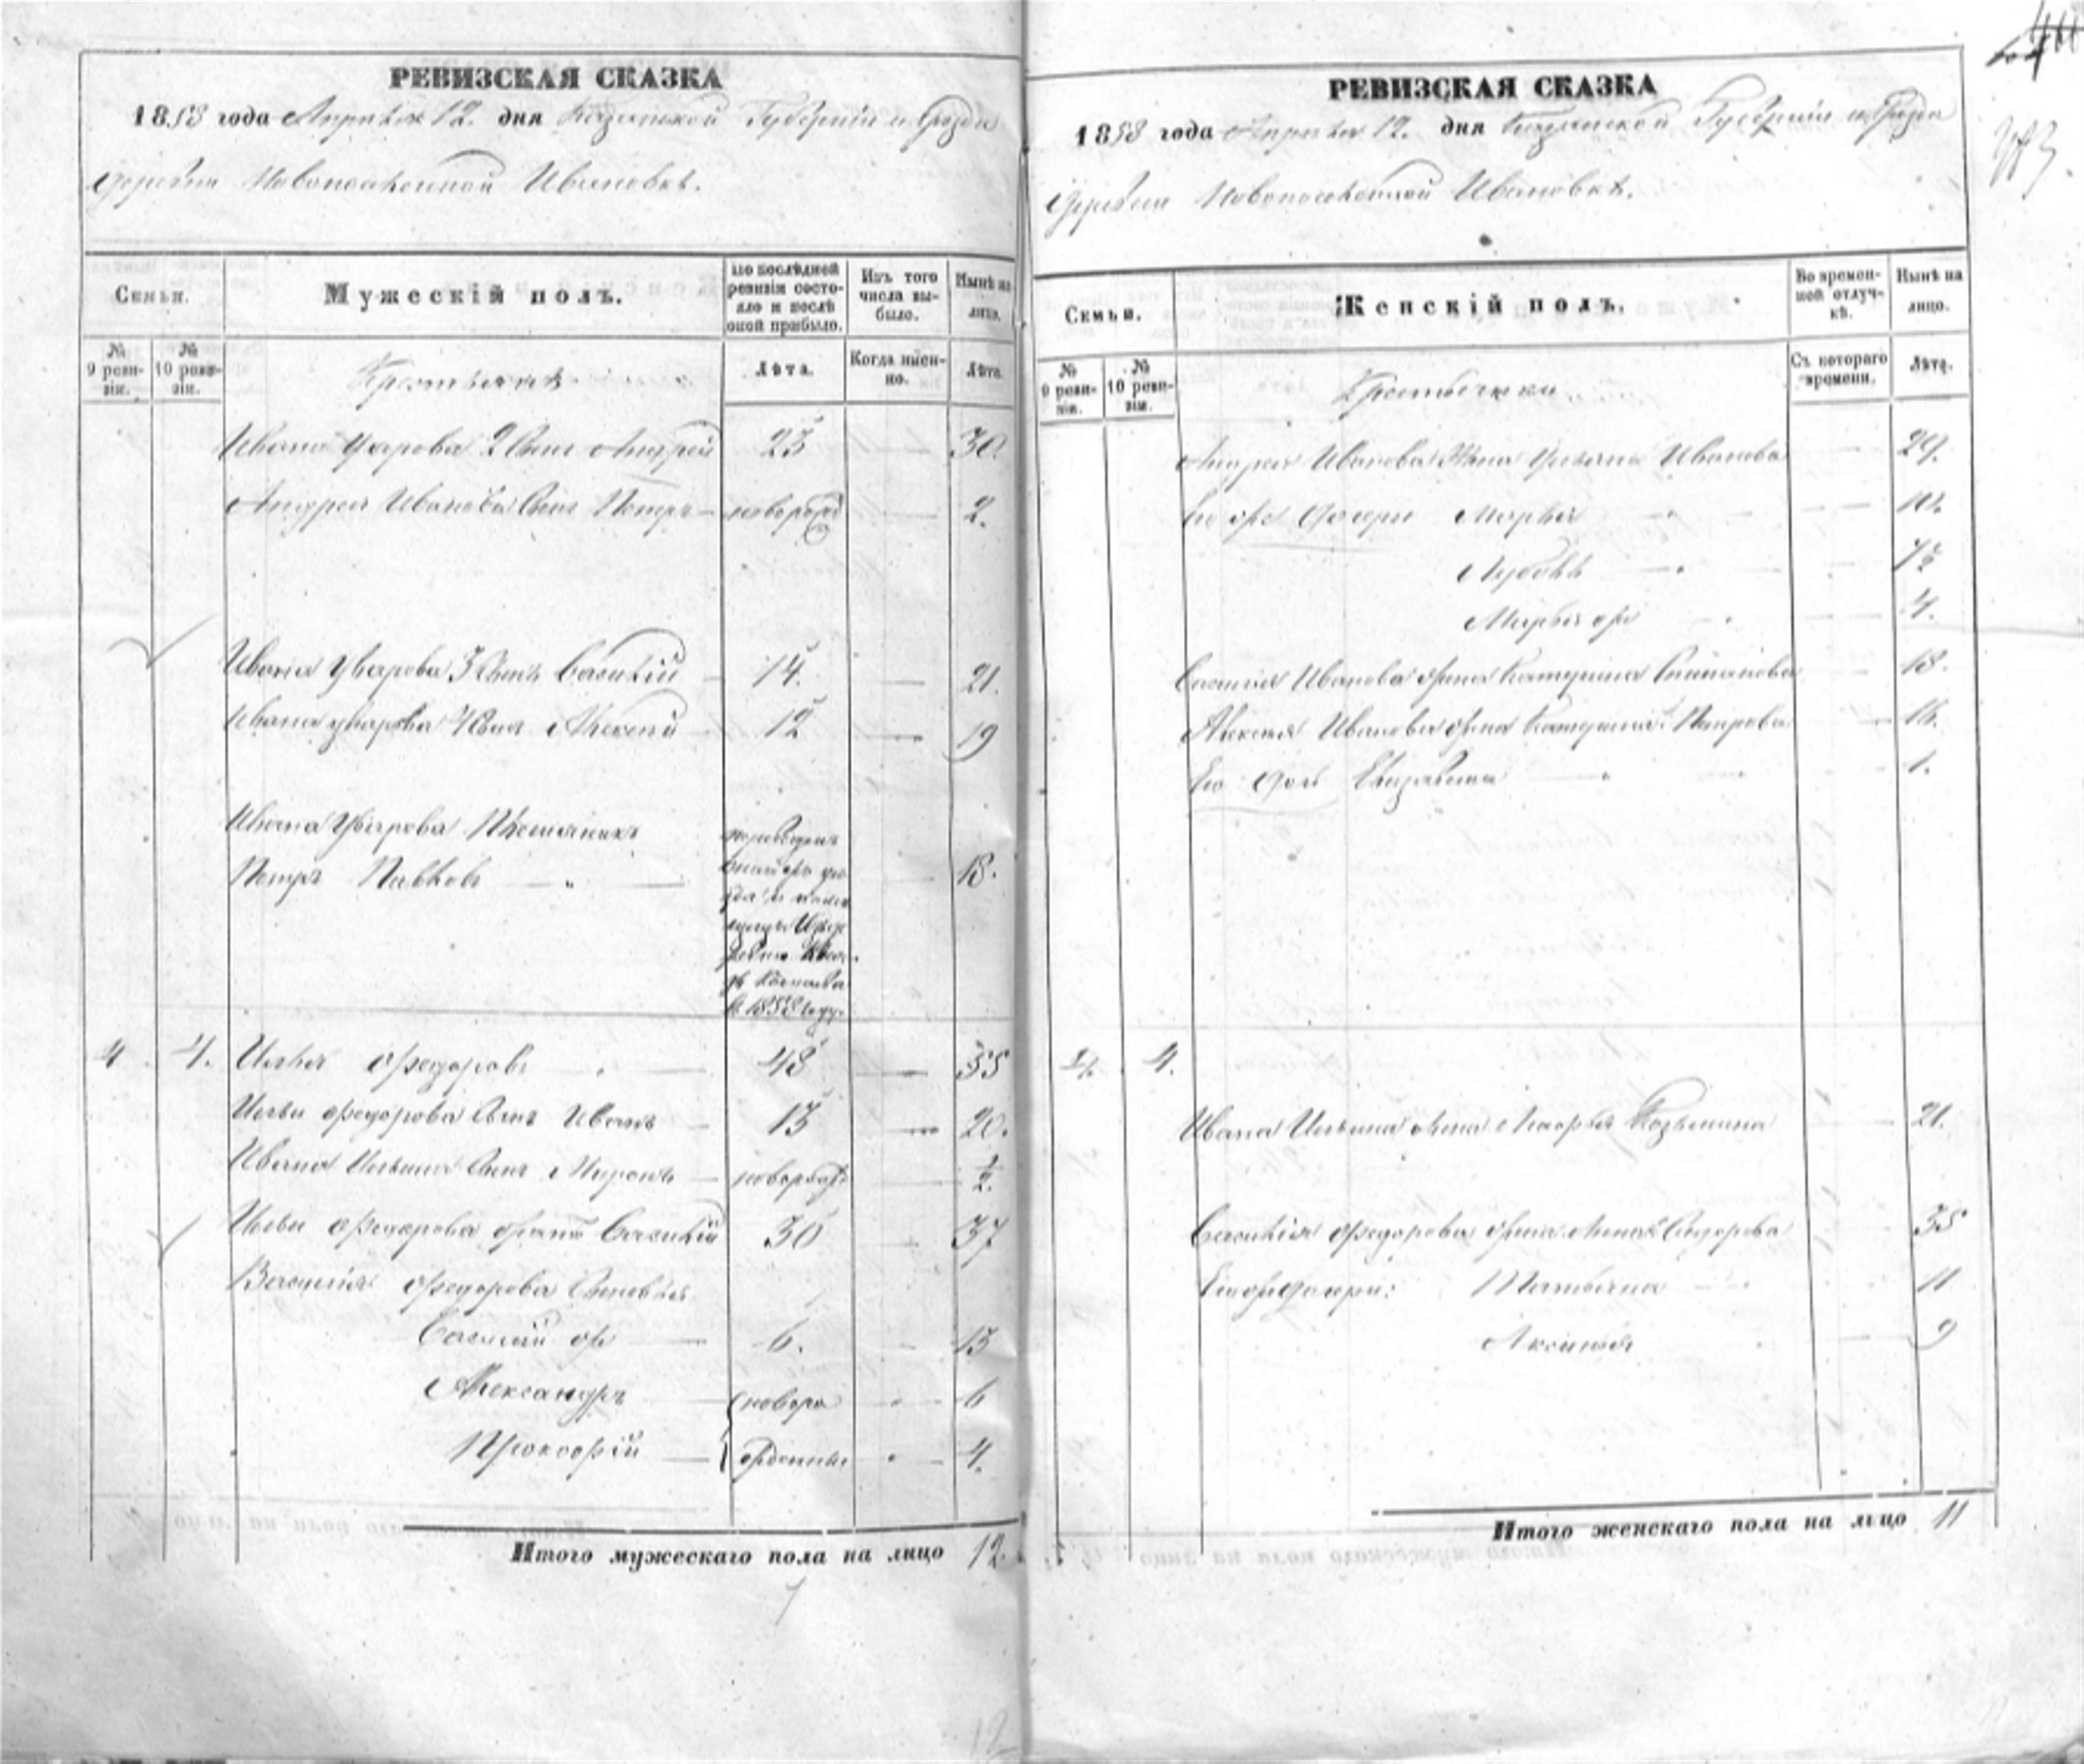 РЕВИЗСКАЯ СКАЗКА
1858 года Апреля 12. дня Казанской Губернiи и Уезда
деревни Новопоселенной Ивановкѣ.
Семьи.
Мужескiй полъ.
По послѣдней ревизiи состояло и послѣ оной прибыло.
Изъ того числа выбыло.
Нынѣ на лицо.
№ 9 ревизiи.
№ 10 ревизiи.
Крестьянѣ
Лѣта.
Когда именно.
Лѣта.
Ивана Уварова 2 Сынъ Андрей 23 — 30.
Андрея Иванова Сынъ Петръ — новорожд — 2.
Ивана Уварова 3 Сынъ Василiй — 14. — 21.
Ивана Уварова 4 Сынъ Алексей — 12 — 19
Ивана Уварова Племяникъ
Петръ Павловъ — " — 18.
в 1858 году.
4 4. Илья Федоровъ — 48 — 55
Ильи Федорова Сынъ Иванъ — 13 — 20.
Ивана Ильина Сынъ Миронъ — новорожд — 1/2.
Ильи Федорова братъ Василiй 30 — 37
Василiя Федорова Сыновья
Василiй — 6. — 13
Александръ — новоро — 6
Прокофiй — жденные — 4.
Итого мужескаго пола на лицо 12.
РЕВИЗСКАЯ СКАЗКА
1858 года Апреля 12. дня Казанской Губернiи и Уезда
деревни Новопоселенной Ивановкѣ.
Семьи.
Женскiй полъ.
Во временной отлучкѣ.
Нынѣ на лицо.
№ 9 ревизiи.
№ 10 ревизiи.
Крестьянки
Съ котораго времени.
Лѣта.
Андрея Иванова Жена Ульяна Иванова — 29.
Его же дочери Марья — 10.
Любовь — 7
Марья — 4.
Василiя Иванова жена Катерина Степанова — 18.
Алексея Иванова жена Катерина Петрова — 18.
Его дочь Елизавета — 1.
4. 4.
Ивана Ильина жена Марья Козьмина — 21.
Василiя Федорова жена Анна Сидорова 35
Его же дочери: Татьяна — 11
Аксинья — 9
Итого женскаго пола на лицо 11